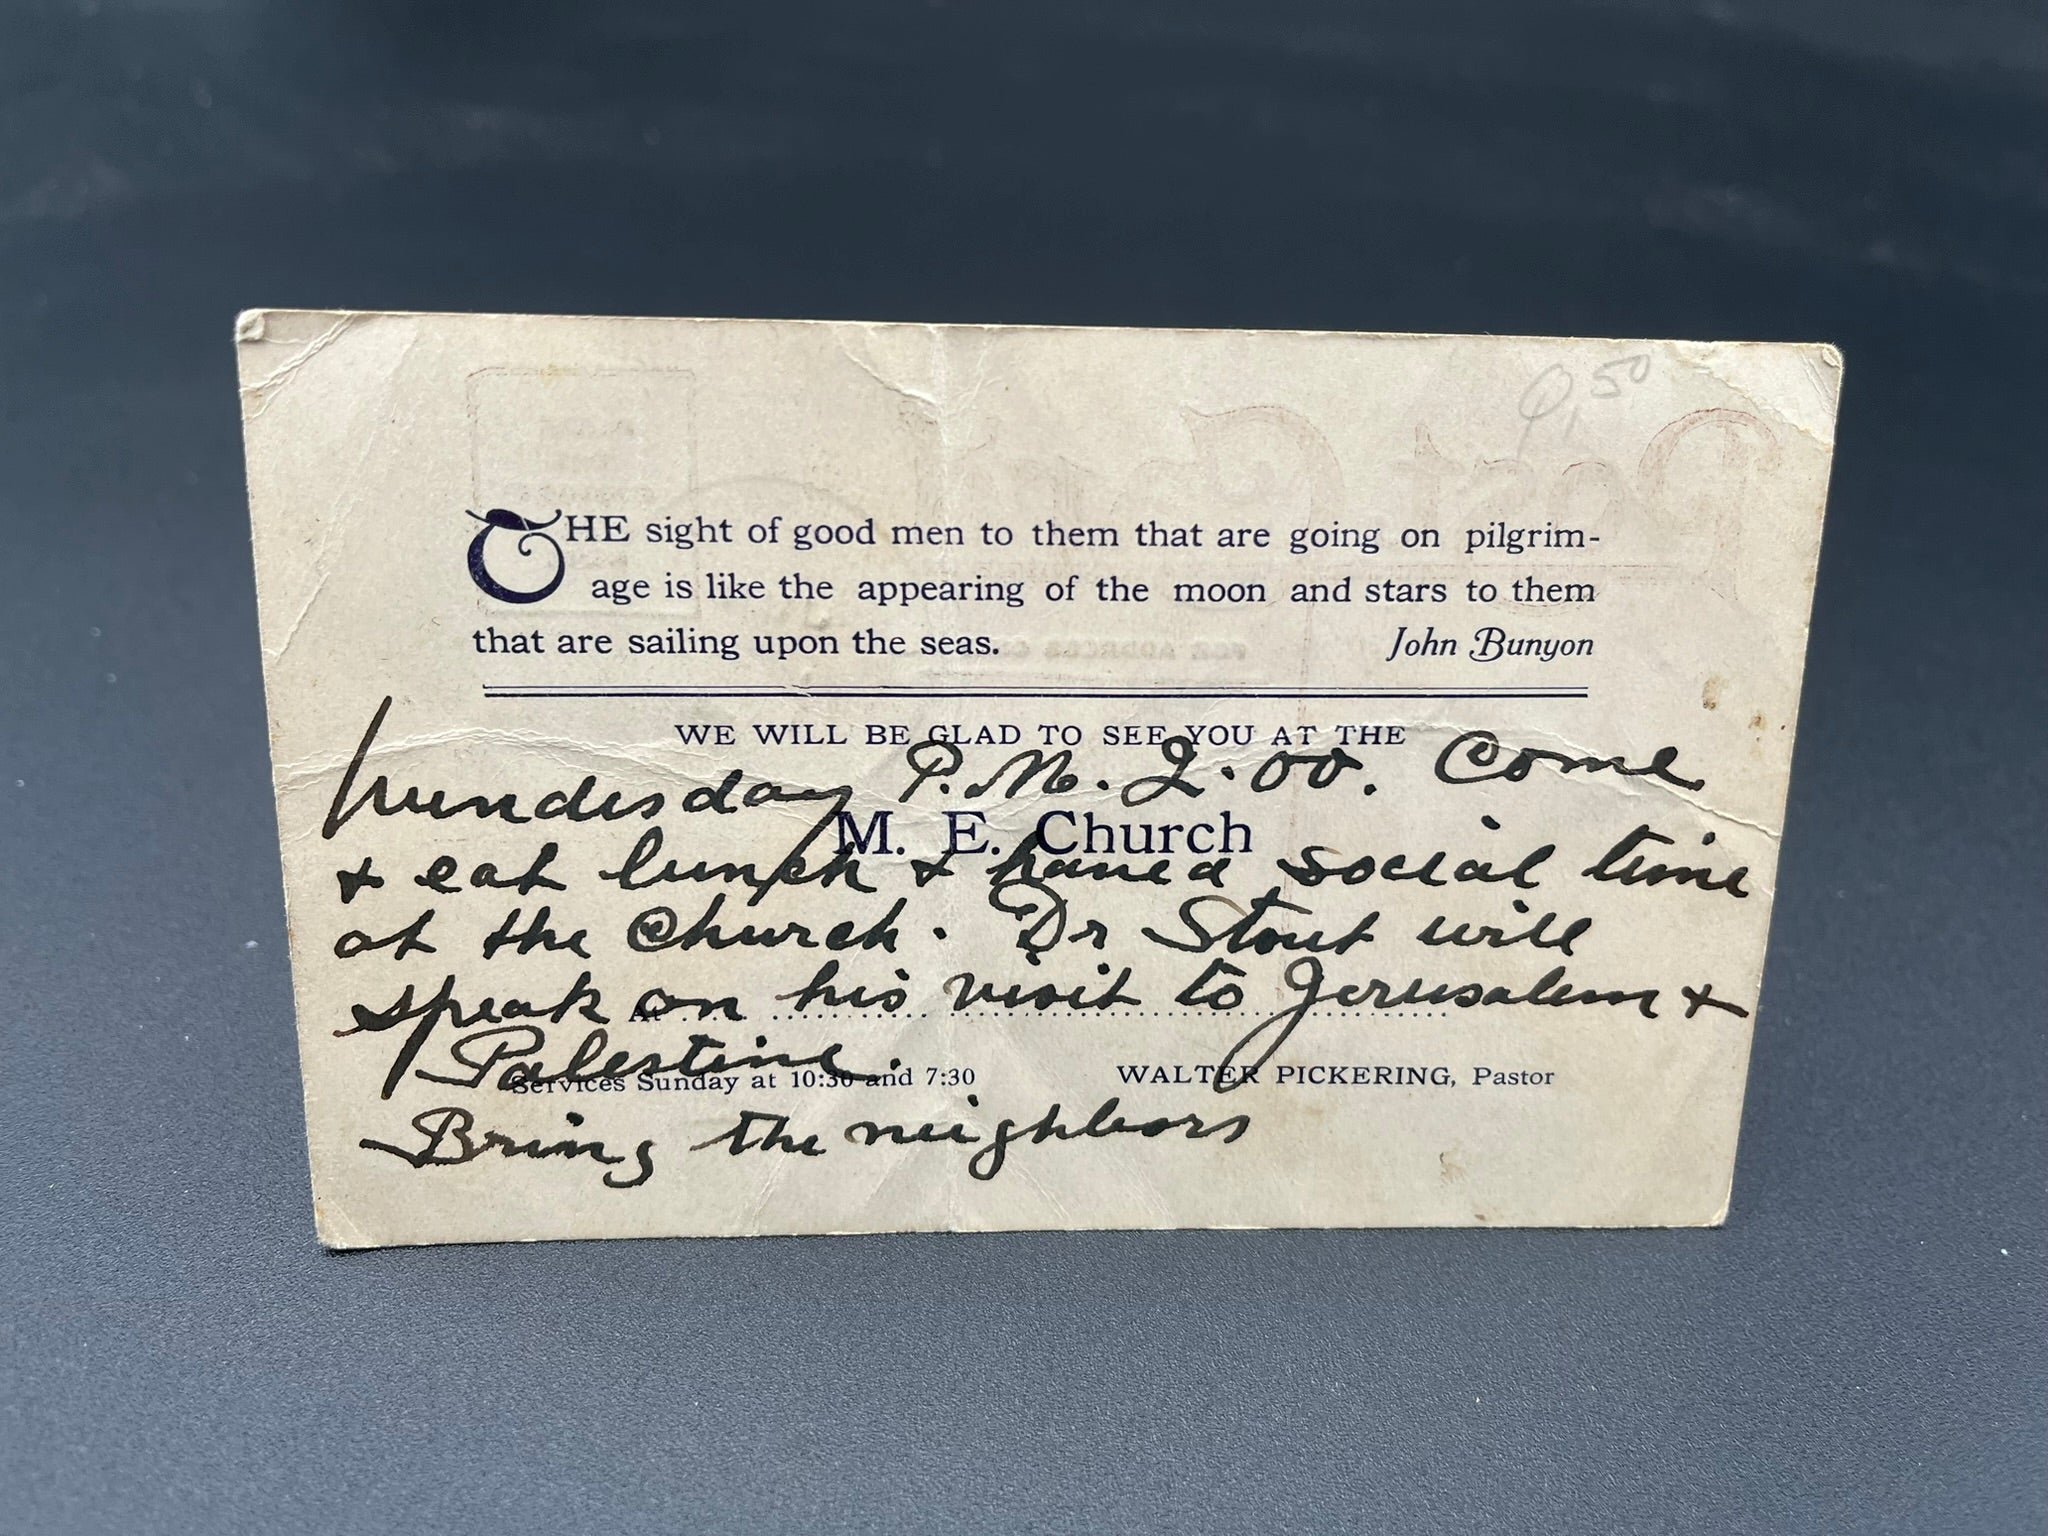 THE sight of good men to them that are going on pilgrim-
age is like the appearing of the moon and stars to them
that are sailing upon the seas. John Bunyon
WE WILL BE GLAD TO SEE YOU AT THE
Wendesday P.M. 2.00. Come
M. E. Church
& eat lunch & have a social time
at the Church. Dr Stout will
speak on his visit to Jerusalem &
At
Palestine.
Services Sunday at 10:30 and 7:30 WALTER PICKERING, Pastor
Bring the neighbors